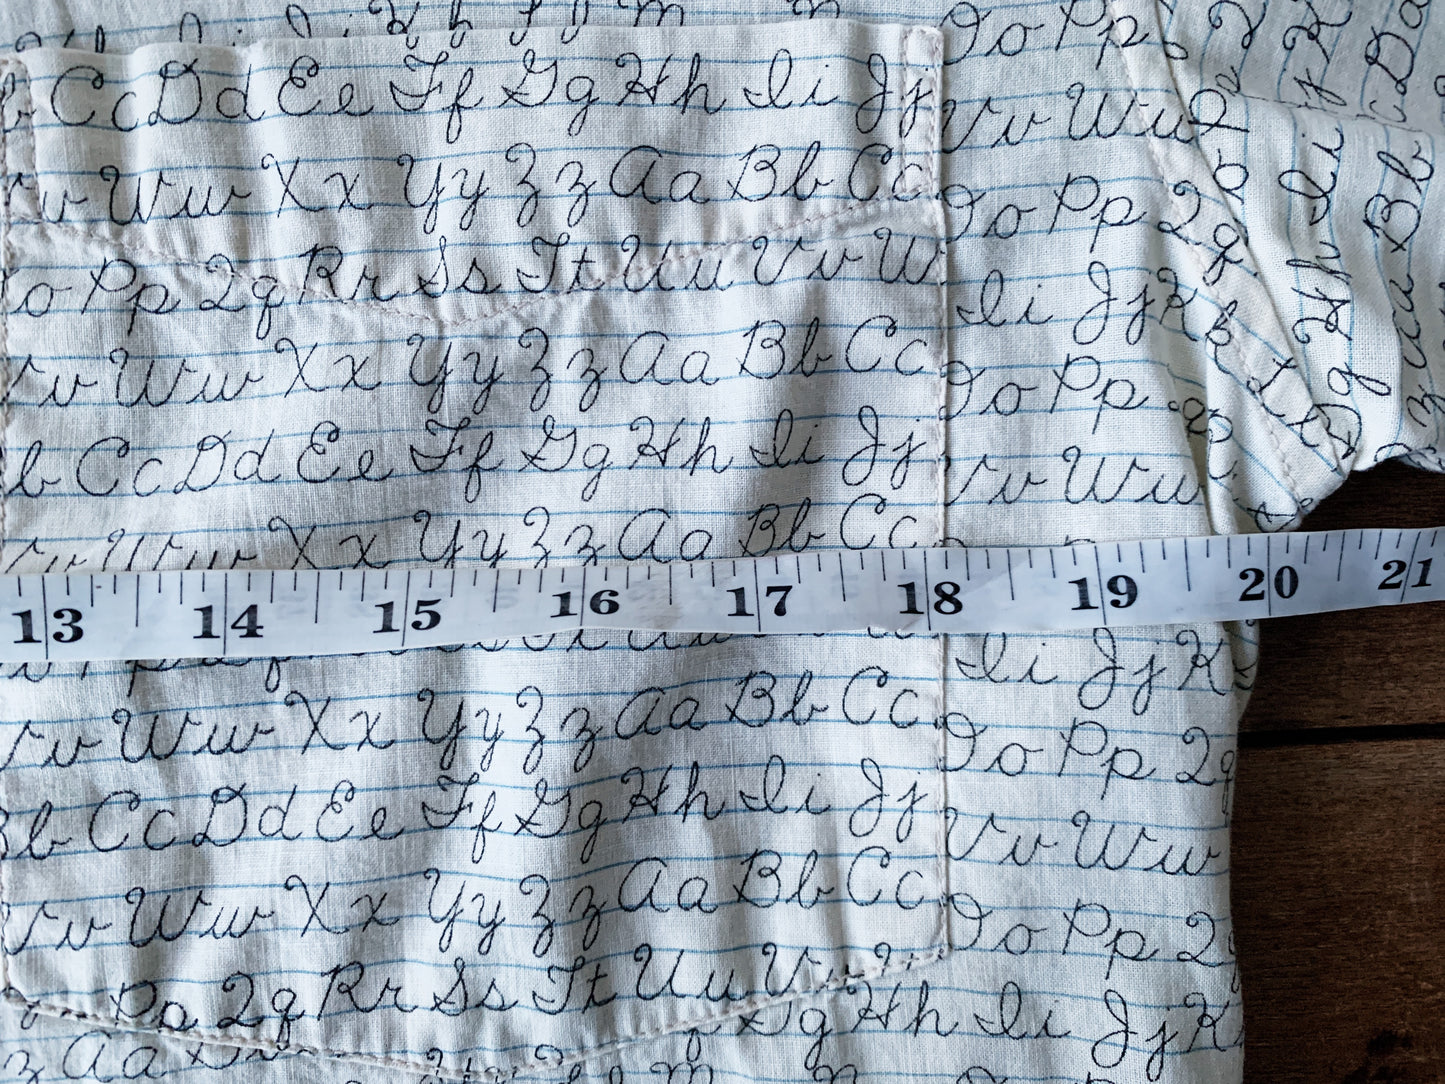 Cc Dd Ee Ff Gg Hh Ii Jj
Vv Ww
v Ww Xx Yy Zz Aa Bb Cc
Oo Pp Qq
o Pp Qq Rr Ss Tt Uu Vv W
Ii Jj Kk
v Ww Xx Yy Zz Aa Bb Cc
Oo Pp
b Cc Dd Ee Ff Gg Hh Ii Jj
Vv Ww
Xx Yy Zz Aa Bb Cc
13 14 15 16 17 18 19 20 21
Ii Jj K
Vv Ww Xx Yy Zz Aa Bb Cc
Oo Pp Qq
b Cc Dd Ee Ff Gg Hh Ii Jj
Vv Ww
Vv Ww Xx Yy Zz Aa Bb Cc
Oo Pp Q
Pp Qq Rr Ss Tt Uu Vv
Gg Hh Ii Jj K
z Aa